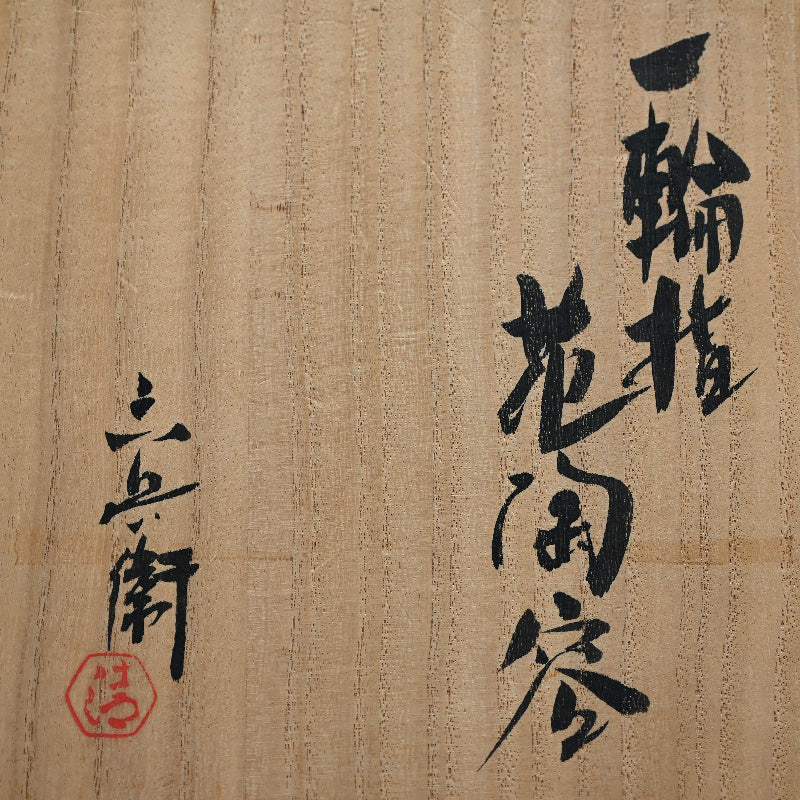 一輪指
花陶窯
六兵衛
清